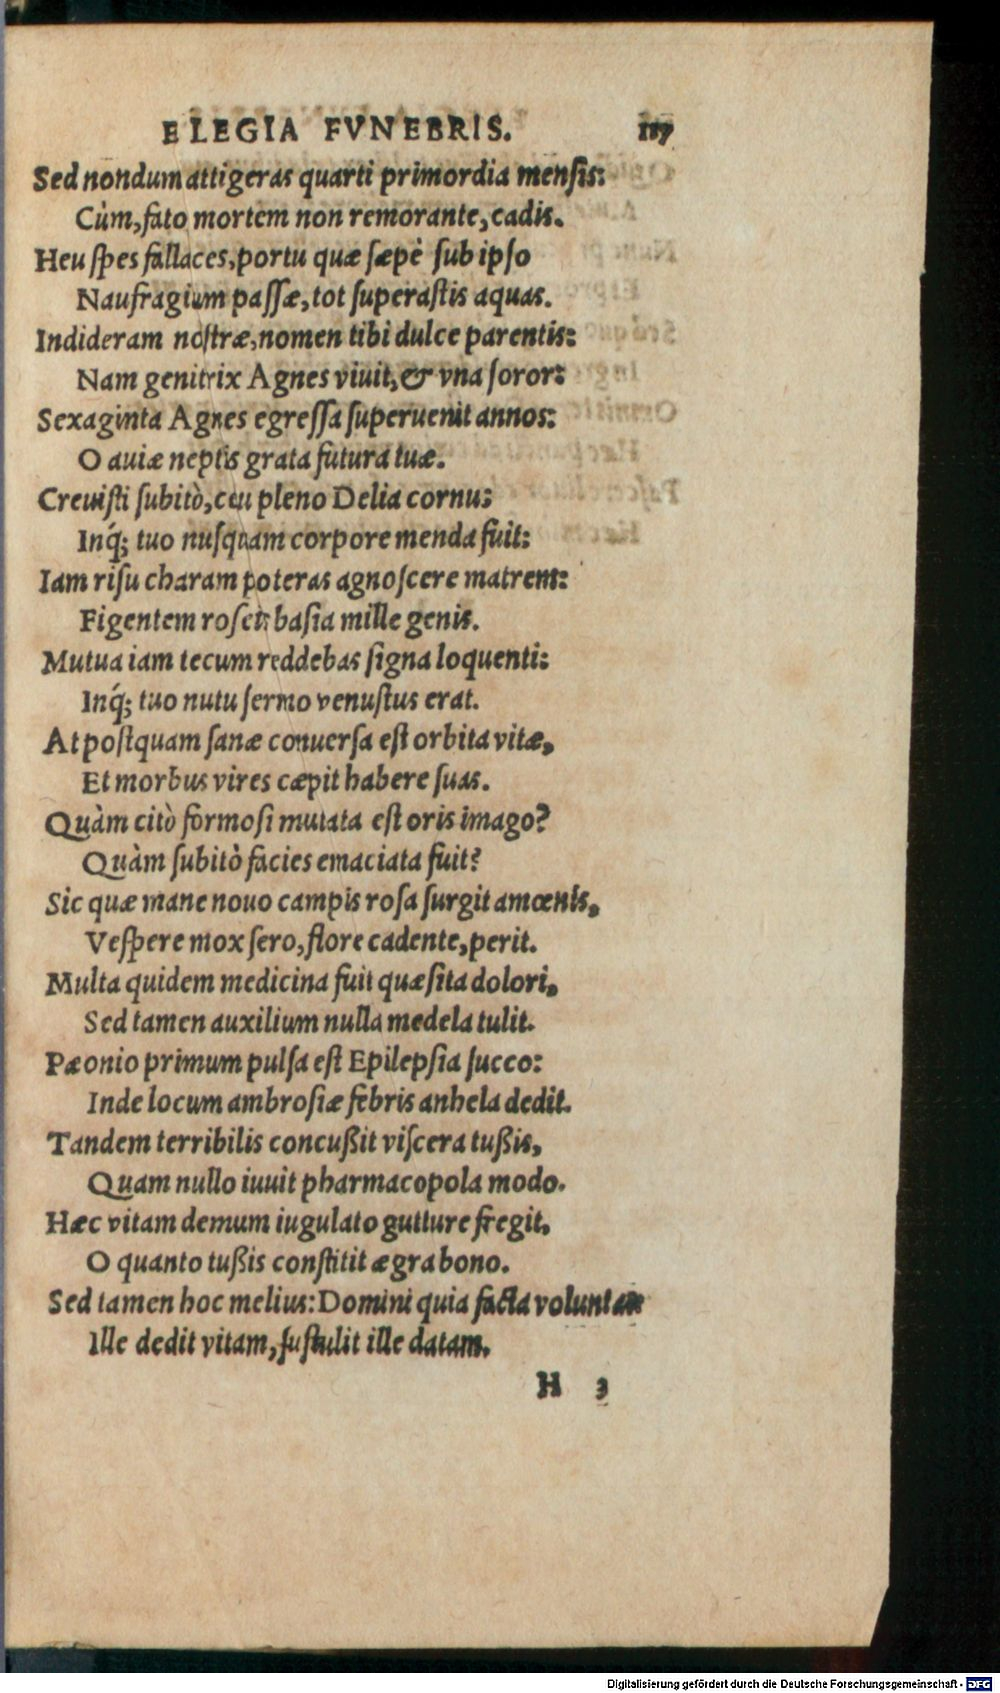 ELEGIA FVNEBRIS. 117
Sed nondum attigeras quarti primordia mensis:
Cùm, fato mortem non remorante, cadis.
Heu spes fallaces, portu quæ sæpè sub ipso
Naufragium passæ, tot superastis aquas.
Indideram nostræ, nomen tibi dulce parentis:
Nam genitrix Agnes viuit, & vna soror:
Sexaginta Agnes egressa superuenit annos:
O auiæ neptis grata futura tuæ.
Crevisti subitò, ceu pleno Delia cornu:
Inq́; tuo nusquam corpore menda fuit:
Iam risu charam poteras agnoscere matrem:
Figentem roseis basia mille genis.
Mutua iam tecum reddebas signa loquenti:
Inq́; tuo nutu sermo venustus erat.
At postquam sanæ conuersa est orbita vitæ,
Et morbus vires cæpit habere suas.
Quàm citò formosi mutata est oris imago?
Quàm subitò facies emaciata fuit?
Sic quæ mane nouo campis rosa surgit amœnis,
Vespere mox sero, flore cadente, perit.
Multa quidem medicina fuit quæsita dolori,
Sed tamen auxilium nulla medela tulit.
Pæonio primum pulsa est Epilepsia succo:
Inde locum ambrosiæ febris anhela dedit.
Tandem terribilis concußit viscera tußis,
Quam nullo iuuit pharmacopola modo.
Hæc vitam demum iugulato gutture fregit,
O quanto tußis constitit ægra bono.
Sed tamen hoc melius: Domini quia facta voluntas
Ille dedit vitam, sustulit ille datam.
H 3
Digitalisierung gefördert durch die Deutsche Forschungsgemeinschaft - DFG